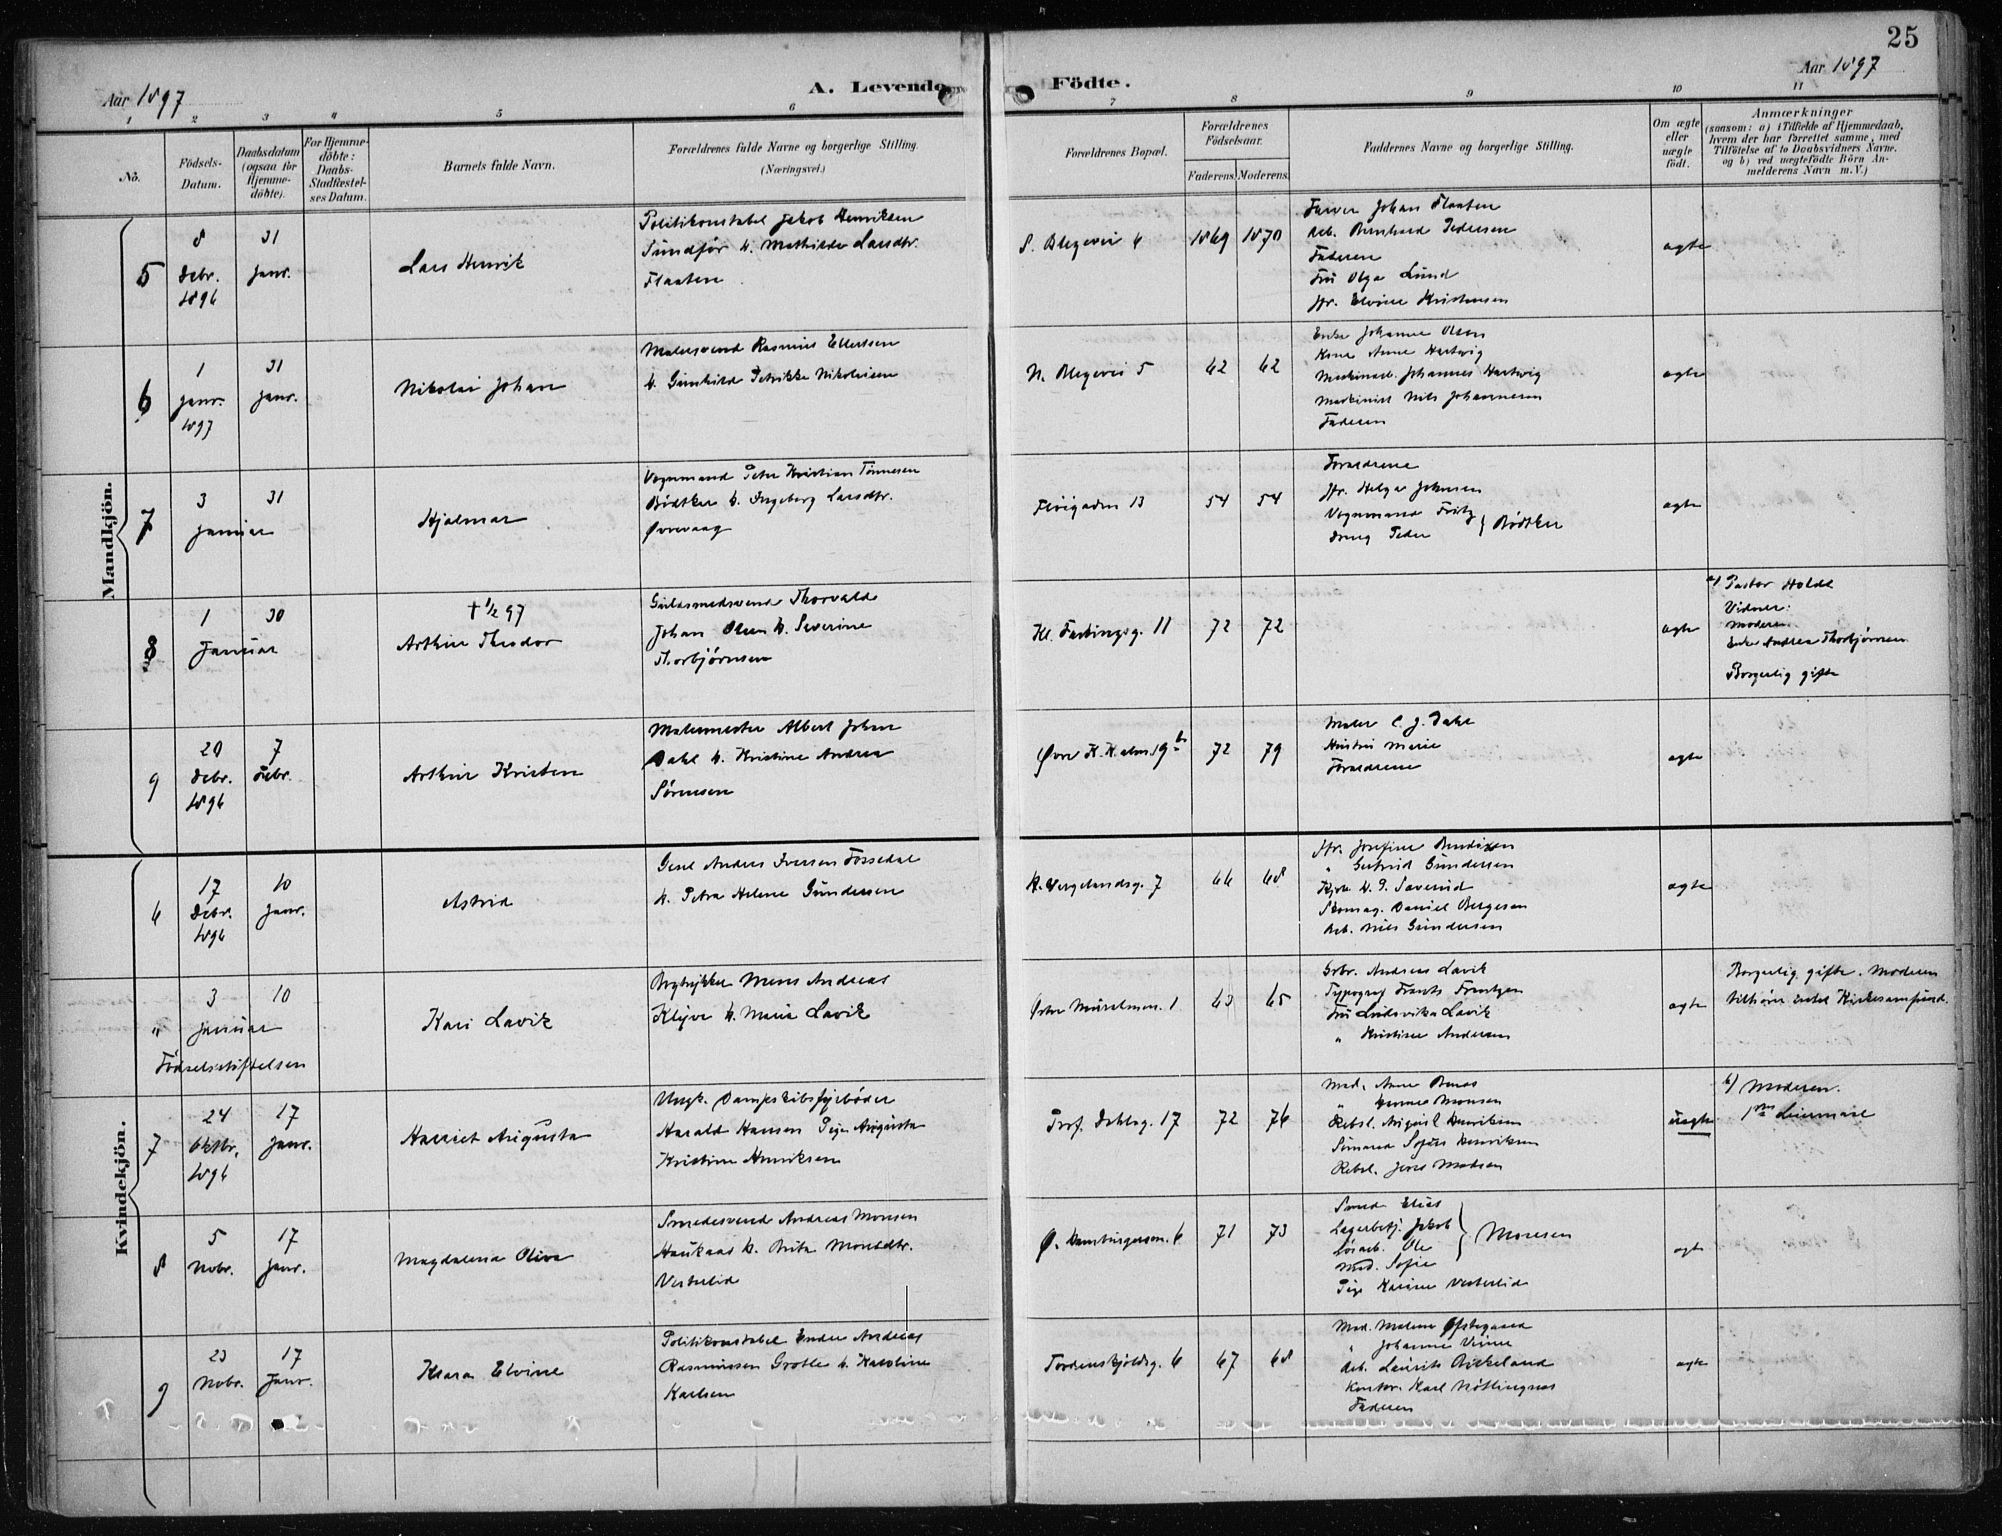 25
Aar 1897
A. Levende Födte.
Aar 1897
1 2 3 4 5 6 7 8 9 10 11
No.
Födsels-Datum.
Daabsdatum (ogsaa for Hjemme-döbte).
For Hjemme-döbte: Daabs-Stadfæstel-ses Datum.
Barnets fulde Navn.
Forældrenes fulde Navne og borgerlige Stilling.
(Næringsvei.)
Forældrenes Bopæl.
Forældrenes Födselsaar.
Faderens. Moderens.
Faddernes Navne og borgerlige Stilling.
Om ægte eller uægte födt.
Anmærkninger
(saasom: a) i Tilfælde af Hjemmedaab, hvem der har forrettet samme, med Tilföielse af to Daabsvidners Navne. og b) ved uægtefödte Börn An-melderens Navn m.V.)
Mandkjön.
5
8 Debr. 1896
31 Janr.
Lars Henrik
Politikonstabel Jakob Henriksen
Sundför h. Mathilde Larsdtr.
Flaaten
S. Blegevei 6
1869 1870
Farver Johan Flaaten
Arb. Bernhard Pedersen
Faderen
Fru Olga Lund
Jfr. Elvine Kristensen
ægte
6
1 Janr. 1897
31 Janr.
Nikolai Johan
Malersvend Rasmus Ellertsen
h. Gunhilde Petrikke Nikolaisen
N. Blegevei 5
62 62
Enke Johanne Olsen
Kone Anne Hartvig
Maskinarb. Johannes Hartwig
Maskinist Nils Johannesen
Faderen
ægte
7
3 31
Januar
Hjalmar
Vognmand Peter Kristian Tönnesen
Bødtker h. Ingeborg Larsdtr.
Øvrevaag
Flöigaden 13
54 54
Forældrene
Jfr. Helga Johnsen
Vognmand Fritz
Dreng Peder } Bødtker
ægte
8
1 30
Januar
† 1/2 97
Arthur Theodor
Guldsmedsvend Thorvald
Johan Olsen h. Severine
Thorbjørnsen
Kl. Fastingsg. 11
72 72
ægte
a) Pastor Holdt
Vidner:
Moderen
Enke Andrea Thorbjørnsen
Borgerlig gifte
9
20 Debr. 1896
7 Febr.
Arthur Kristen
Malermester Albert Johan
Dahl h. Kristine Andrea
Sørensen
Øvre K. Kalms. 19 b
72 79
Maler C. J. Dahl
Hustru Marie
Forældrene
ægte
Kvindekjön.
6
17 Debr. 1896
10 Janr.
Astrid
Gesel Andreas Iversen Fossedal
h. Petra Helene Gundersen
H. Vergelandsg. 7
66 68
Jfr. Josefine Bendixen
" Gertrud Gundersen
Skomag. Daniel Bergesen
Arb. Nils Gundersen
ægte
"
3 10
Januar
Fødselsstiftelsen
Kari Lavik
Bogtrykker Mons Andreas
Kleive h. Maria Lavik
Østre Muralmen. 1
63 65
Grbr. Andreas Lavik
Typograf Frants Frantzen
Fru Ludovika Lavik
" Kristine Andersen
ægte
Borgerlig gifte. Moderen
tilhører intet Kirkesamfund.
7
24 Oktbr. 1896
17 Janr.
Harriet Augusta
Ungk. Dampskibsfyrbøder
Harald Hansen Pige Augusta
Kristine Henriksen
Prof. Dahlsg. 17
72 76
Mad. Anne Benas
" Hanna Monsen
Rebsl. August Henriksen
Sømand Sofus Henriksen
Rebsl. Jens Madsen
uægte
b) Moderen.
1ste Leiermaal
8
5 Nobr.
17 Janr.
Magdalena Oliva
Smedesvend Andreas Monsen
Haukaas h. Brita Monsdtr.
Vesterlid
Ø. Hamburgersm. 6
71 73
Smed Elias
Lagerbetj. Jakob
Løsarb. Ole
Mad. Sofie } Monsen
Pige Karine Vesterlid
ægte
9
23 Nobr.
17 Janr.
Klara Elvine
Politikonstabel Endre Andreas
Rasmussen Grotle h. Karoline
Karlsen
Tordenskjoldsg. 6
67 68
Mad. Malene Østegaard
" Johanne Vinne
Arb. Laurits Birkeland
Kontor. Karl Nøttingnes
Faderen
ægte